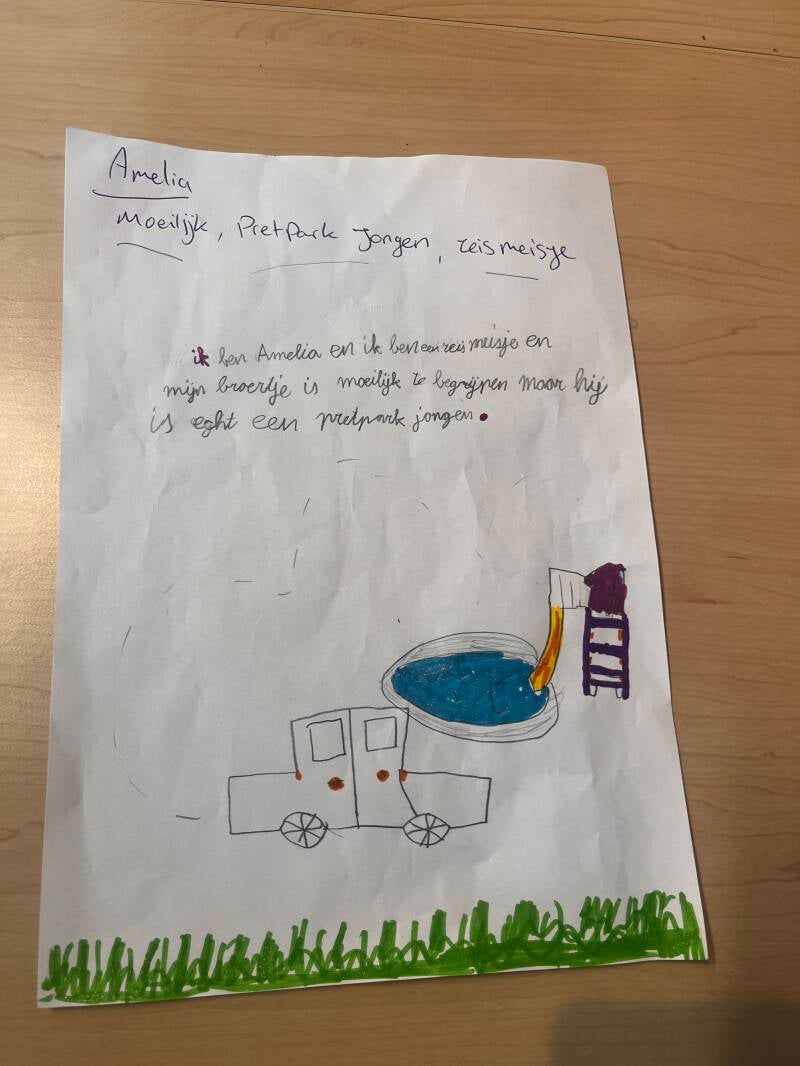 Amelia
Moeilijk, Pretpark jongen, reismeisje
ik ben Amelia en ik ben een reis meisje en
mijn broertje is moeilijk te begrijpen maar hij
is eght een pretpark jongen.